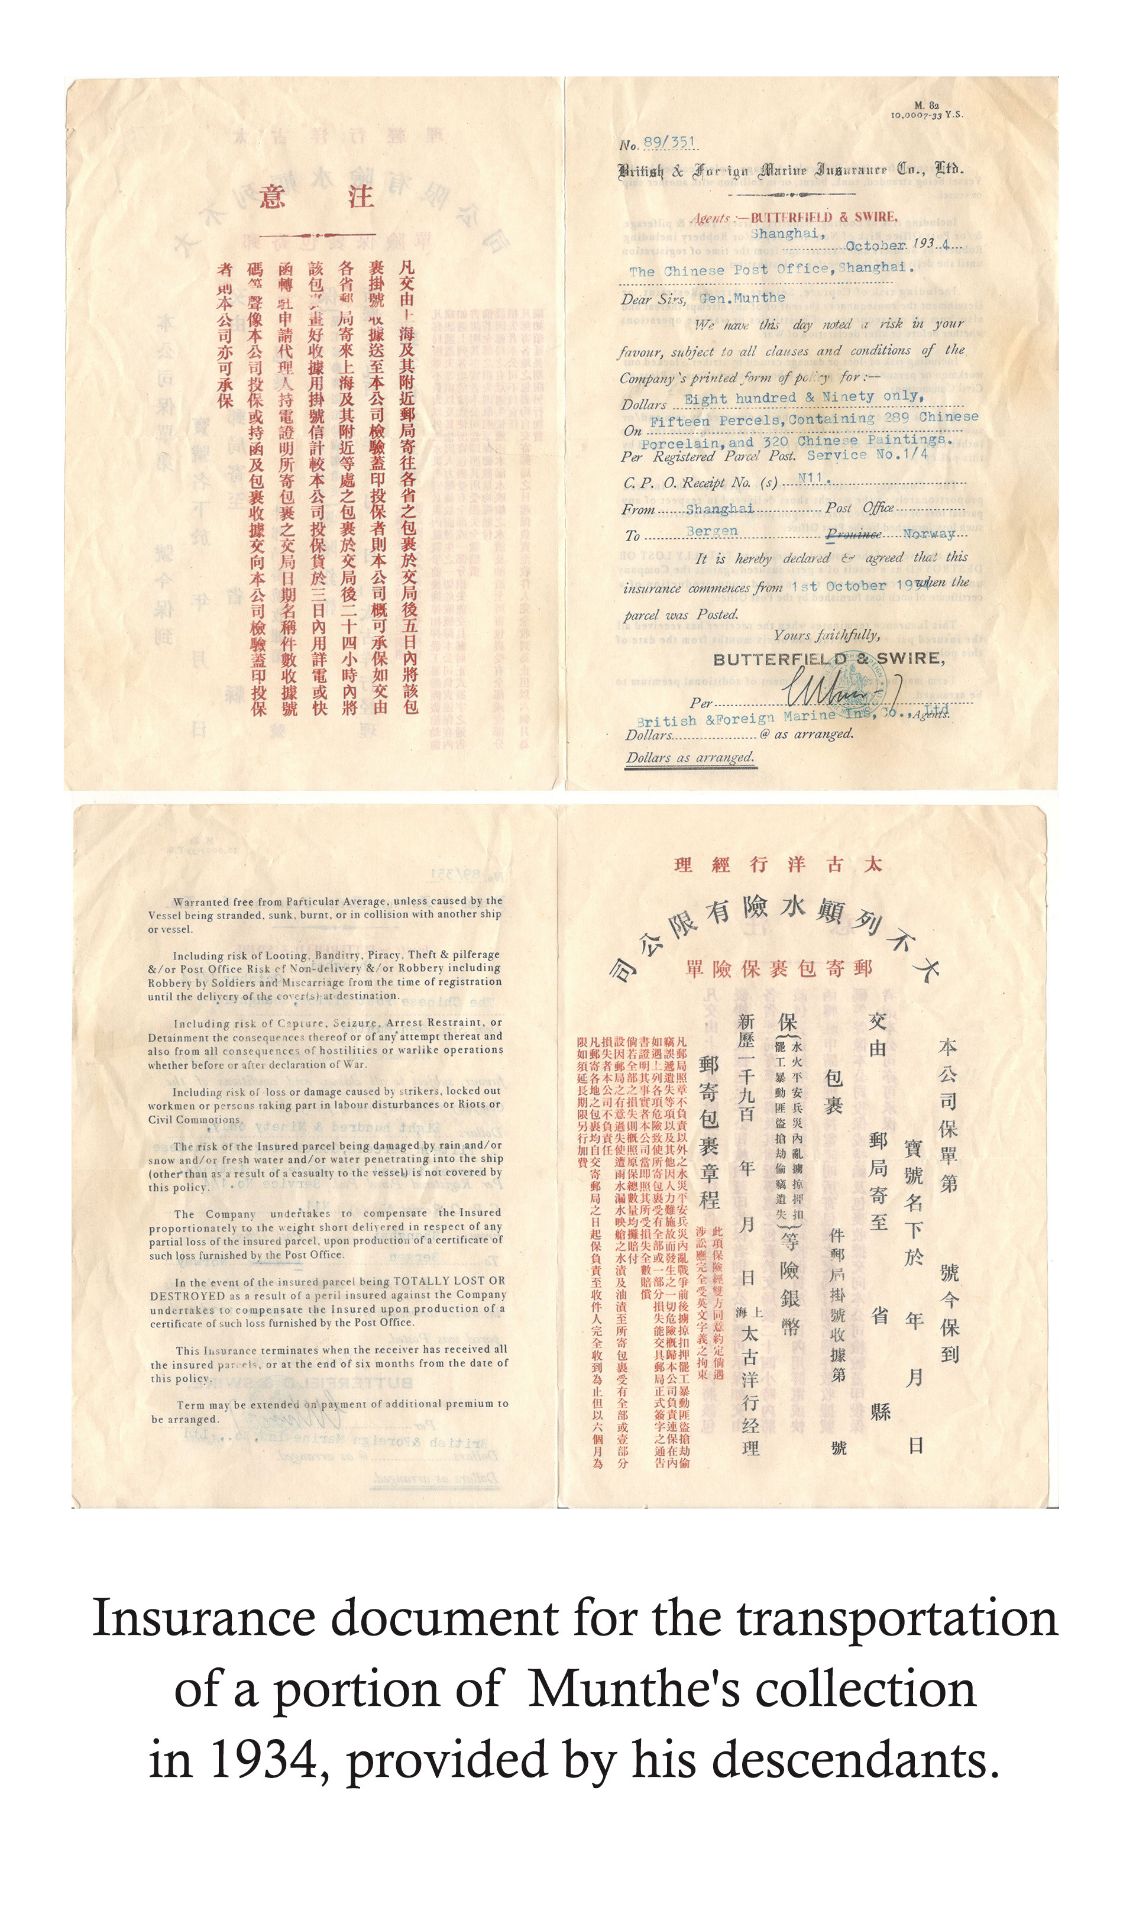 意 注
凡交由上海及其附近郵局寄往各省之包裹於交局後五日內將該包
裹掛號收據送至本公司檢驗蓋印投保者則本公司概可承保如交由
各省郵局寄來上海及其附近等處之包裹於交局後二十四小時內將
該包裹畫好收據用掛號信計較本公司投保貨於三日內用詳電或快
函轉駐申請代理人持電證明所寄包裹之交局日期名稱件數收據號
碼等聲像本公司投保或持函及包裹收據交向本公司檢驗蓋印投保
者則本公司亦可承保
M. 82
10,0007-33 Y.S.
No. 89/351.
British & Foreign Marine Insurance Co., Ltd.
Agents:—BUTTERFIELD & SWIRE,
Shanghai,
October 1934
The Chinese Post Office, Shanghai.
Dear Sirs, Gen.Munthe
We have this day noted a risk in your
favour, subject to all clauses and conditions of the
Company's printed form of policy for:—
Dollars Eight hundred & Ninety only,
On Fifteen Percels, Containing 289 Chinese
Porcelain, and 320 Chinese Paintings.
Per Registered Parcel Post. Service No.1/4
C. P. O. Receipt No. (s) N11.
From Shanghai Post Office
To Bergen Province Norway
It is hereby declared & agreed that this
insurance commences from 1st October 1934 when the
parcel was Posted.
Yours faithfully,
BUTTERFIELD & SWIRE,
Per
British &Foreign Marine Ins, Co., Ltd Agents.
Dollars @ as arranged.
Dollars as arranged.
Warranted free from Particular Average, unless caused by the
Vessel being stranded, sunk, burnt, or in collision with another ship
or vessel.
Including risk of Looting, Banditry, Piracy, Theft & pilferage
&/or Post Office Risk of Non-delivery &/or Robbery including
Robbery by Soldiers and Miscarriage from the time of registration
until the delivery of the cover(s) at destination.
Including risk of Capture, Seizure, Arrest Restraint, or
Detainment the consequences thereof or of any attempt thereat and
also from all consequences of hostilities or warlike operations
whether before or after declaration of War.
Including risk of loss or damage caused by strikers, locked out
workmen or persons taking part in labour disturbances or Riots or
Civil Commotions.
The risk of the Insured parcel being damaged by rain and/or
snow and/or fresh water and/or water penetrating into the ship
(other than as a result of a casualty to the vessel) is not covered by
this policy.
The Company undertakes to compensate the Insured
proportionately to the weight short delivered in respect of any
partial loss of the insured parcel, upon production of a certificate of
such loss furnished by the Post Office.
In the event of the insured parcel being TOTALLY LOST OR
DESTROYED as a result of a peril insured against the Company
undertakes to compensate the Insured upon production of a
certificate of such loss furnished by the Post Office.
This Insurance terminates when the receiver has received all
the insured parcels, or at the end of six months from the date of
this policy.
Term may be extended on payment of additional premium to
be arranged.
理經行洋古太
司公限有險水顚列不大
單險保裹包寄郵
本公司保單第 號今保到
寶號名下於 年 月 日
交由 郵局寄至 省 縣
包裹 件郵局掛號收據第 號
保 水火平安兵災內亂擄掠押扣 罷工暴動匪盜搶劫偷竊遺失 等險銀幣
新歷一千九百 年 月 日 上海 太古洋行经理
郵寄包裹章程 此項保險經雙方同意約定倘遇
涉訟應完全受英文字義之拘束
凡郵局照章不負責以外之水災平安兵災內亂戰爭前後擄掠扣押罷工暴動匪盜搶劫偷
竊誤遞遺失等項以及其他因人力難施故而發生之一切危險概歸本公司負責連保在內
如遇上列各項危險致使所寄包裹受有全部或一部分損失能交具郵局正式簽字之通告
書證明其事實者本公司當即照其所受損失全數賠償
倘若全部之損失則概照原保總數量均攤賠付
設因郵局之有意過失使遭雨水漏水映艙之水漬及油漬至所寄包裹受有全部或壹部分
損失者本公司不負責任
凡郵寄各地之包裹均自交寄郵局之日起保負責至收件人完全收到為止但以六個月為
限如須延長期限另行加費
Insurance document for the transportation
of a portion of Munthe's collection
in 1934, provided by his descendants.